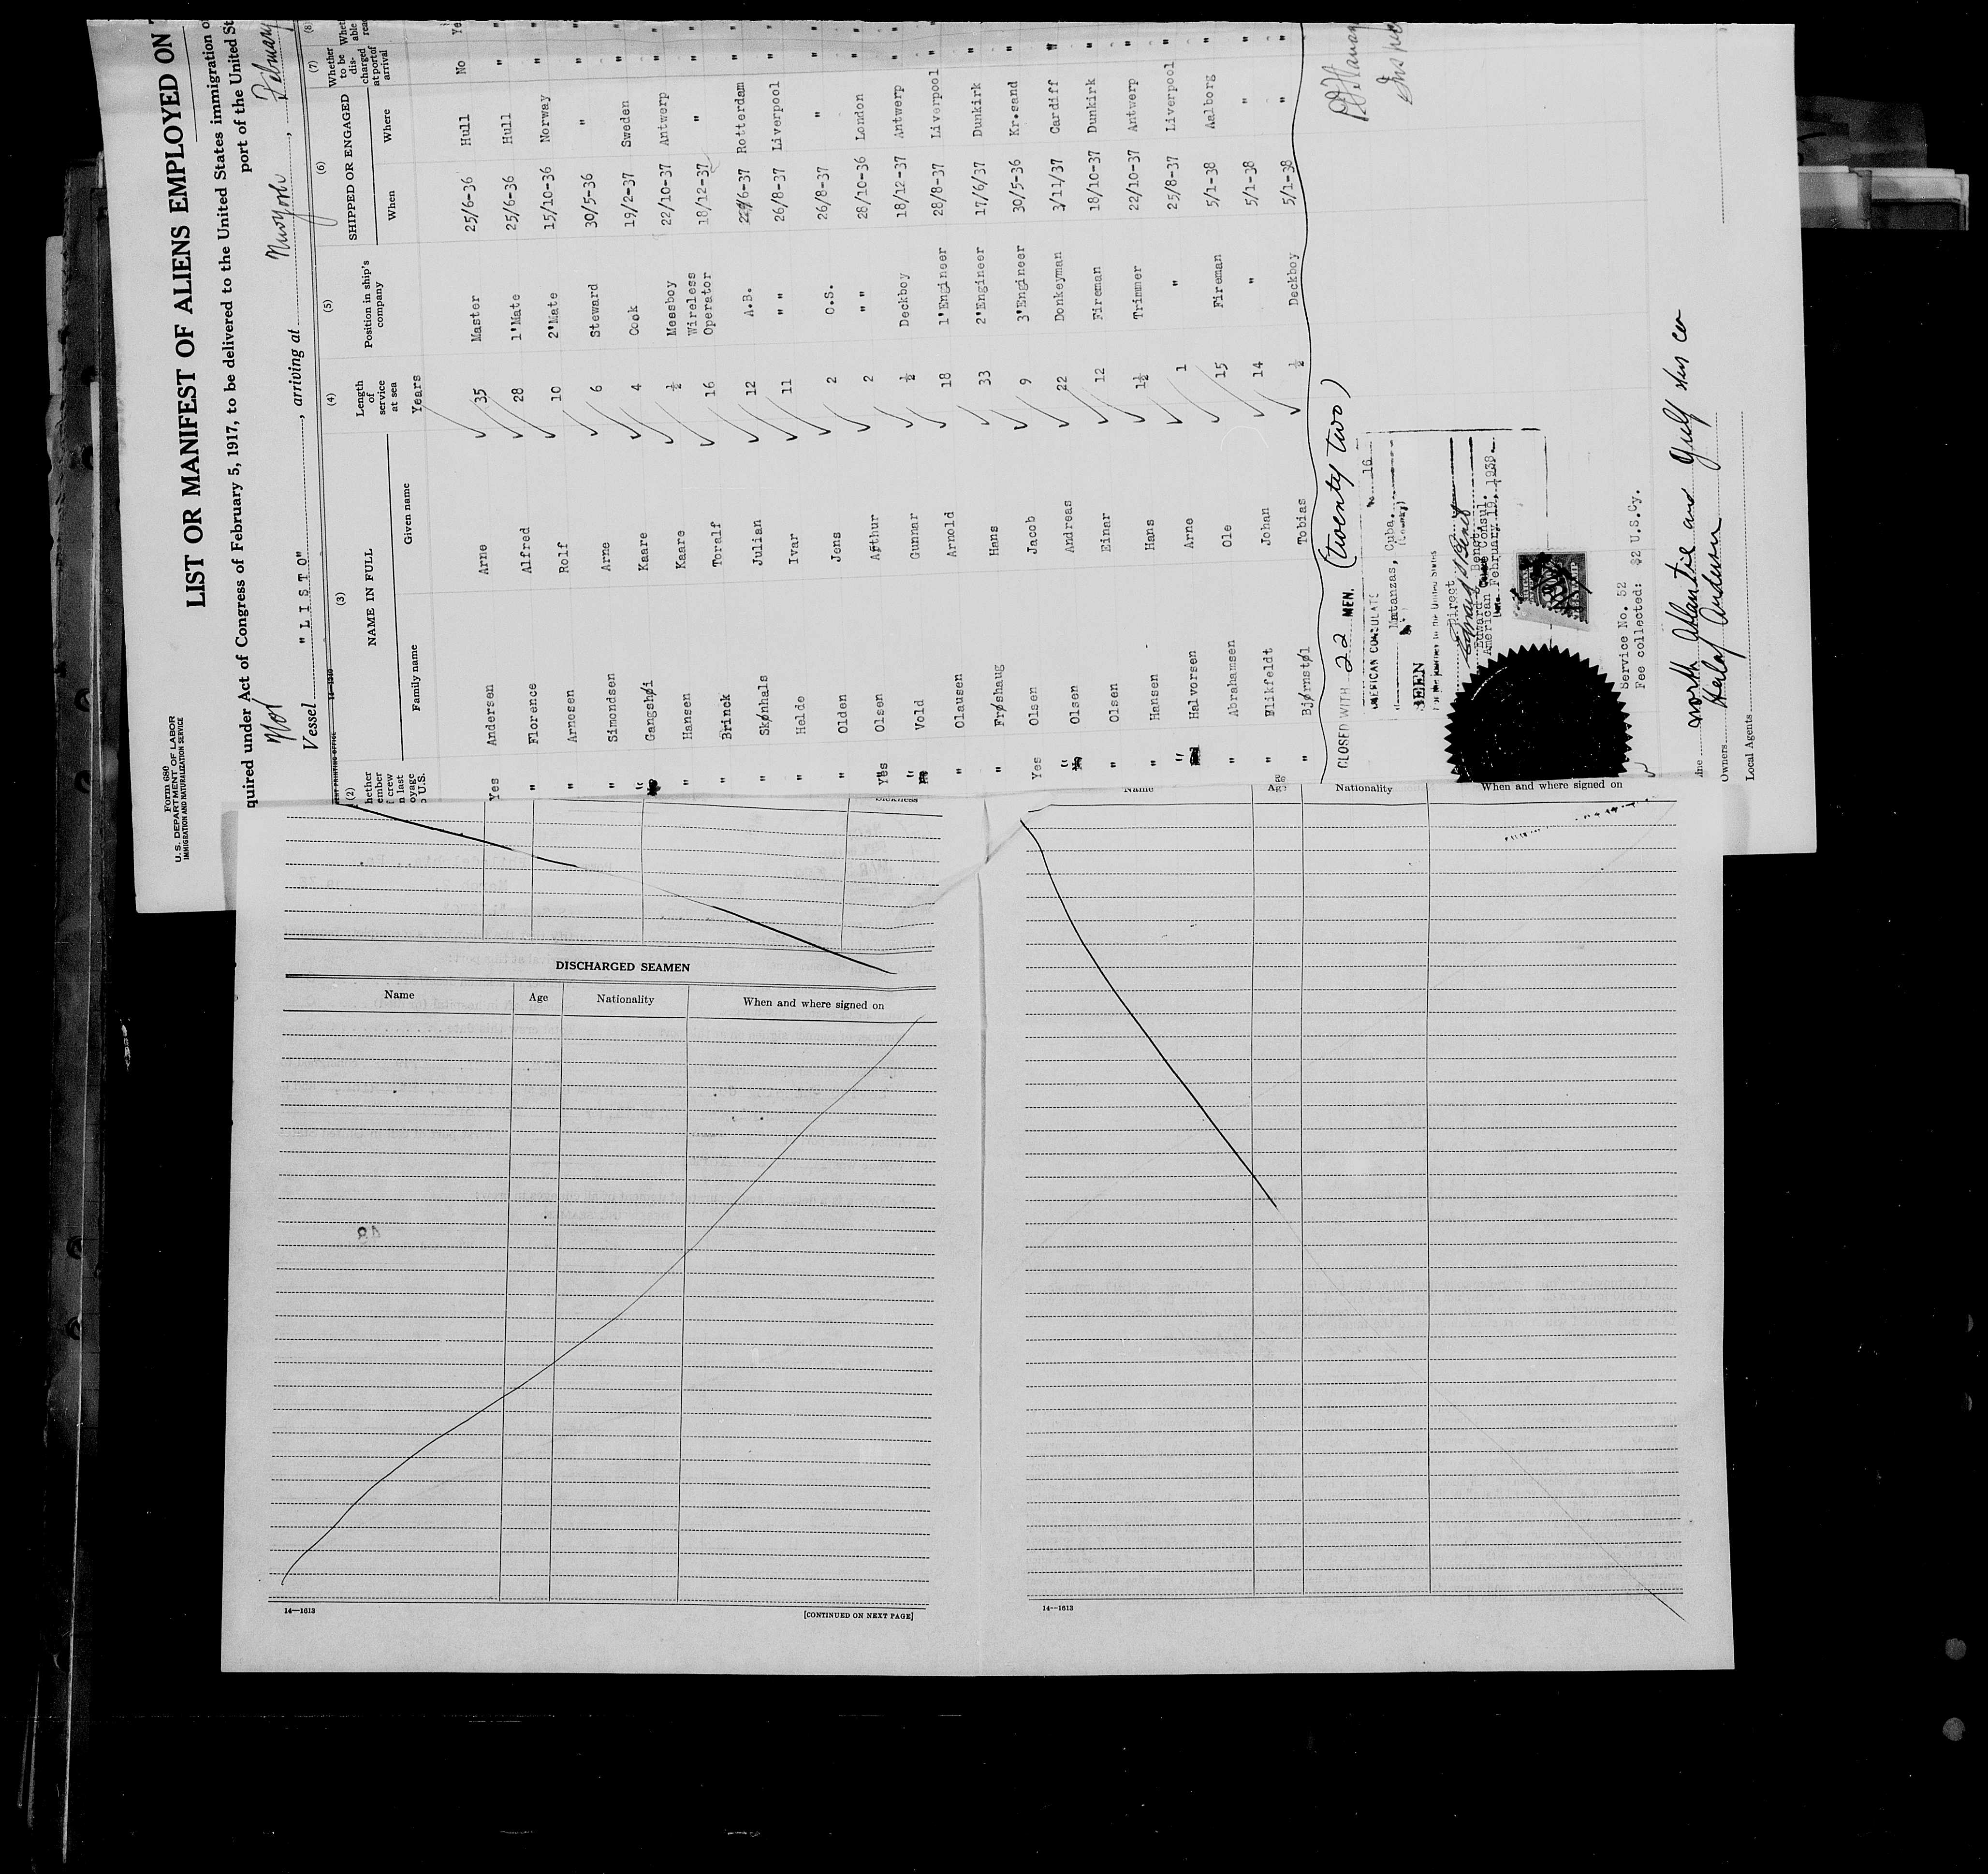 Form 680
U. S. DEPARTMENT OF LABOR
IMMIGRATION AND NATURALIZATION SERVICE
LIST OR MANIFEST OF ALIENS EMPLOYED ON
quired under Act of Congress of February 5, 1917, to be delivered to the United States immigration
port of the United St
Nor
Vessel "LISTO", arriving at New York, February
(2) (3) (4) (5) (6) (7) (8)
hether ember crew n last oyage U.S.
NAME IN FULL
Family name Given name
Length of service at sea
Years
Position in ship's company
SHIPPED OR ENGAGED
When Where
Whether to be discharged at port of arrival
Yes Andersen Arne 35 Master 25/6-36 Hull No Ye
" Florence Alfred 28 1'Mate 25/6-36 Hull " "
" Arnesen Rolf 10 2'Mate 15/10-36 Norway " "
" Simondsen Arne 6 Steward 30/5-36 " " "
" Gangshøi Kaare 4 Cook 19/2-37 Sweden " "
" Hansen Kaare ½ Messboy 22/10-37 Antwerp " "
" Brinck Toralf 16 Wireless Operator 18/12-37 " " "
" Skønhals Julian 12 A.B. 6-37 Rotterdam " "
" Helde Ivar 11 " " 26/8-37 Liverpool " "
" Olden Jens 2 O.S. 26/8-37 " " "
Yes Olsen Arthur 2 " " 28/10-36 London " "
" Vold Gunnar ½ Deckboy 18/12-37 Antwerp " "
" Clausen Arnold 18 1'Engineer 28/8-37 Liverpool " "
" Frøshaug Hans 33 2'Engineer 17/6/37 Dunkirk " "
Yes Olsen Jacob 9 3'Engineer 30/5-36 Kr.sand " "
" Olsen Andreas 22 Donkeyman 3/11/37 Cardiff " "
" Olsen Einar 12 Fireman 18/10-37 Dunkirk " "
" Hansen Hans 1½ Trimmer 22/10-37 Antwerp " "
" Halvorsen Arne 1 " 25/8-37 Liverpool " "
" Abrahamsen Ole 15 Fireman 5/1-38 Aalborg " "
" Flikfeldt Johan 14 " 5/1-38 " " "
" Bjørnstøl Tobias ½ Deckboy 5/1-38 " " "
CLOSED WITH 22 MEN. (twenty two)
AMERICAN CONSULATE 16
Matanzas, Cuba.
SEEN
For the journey to the United States
Direct
Edward S. Benet.
American Consul.
February 19, 1938.
Service No. 52
Fee collected: $2 U.S.Cy.
ine North Atlantic and Gulf SS Co
Owners Herlof Andersen
Local Agents
Sickness
DISCHARGED SEAMEN
Name Age Nationality When and where signed on
14—1613 [CONTINUED ON NEXT PAGE]
Name Age Nationality When and where signed on
14—1613